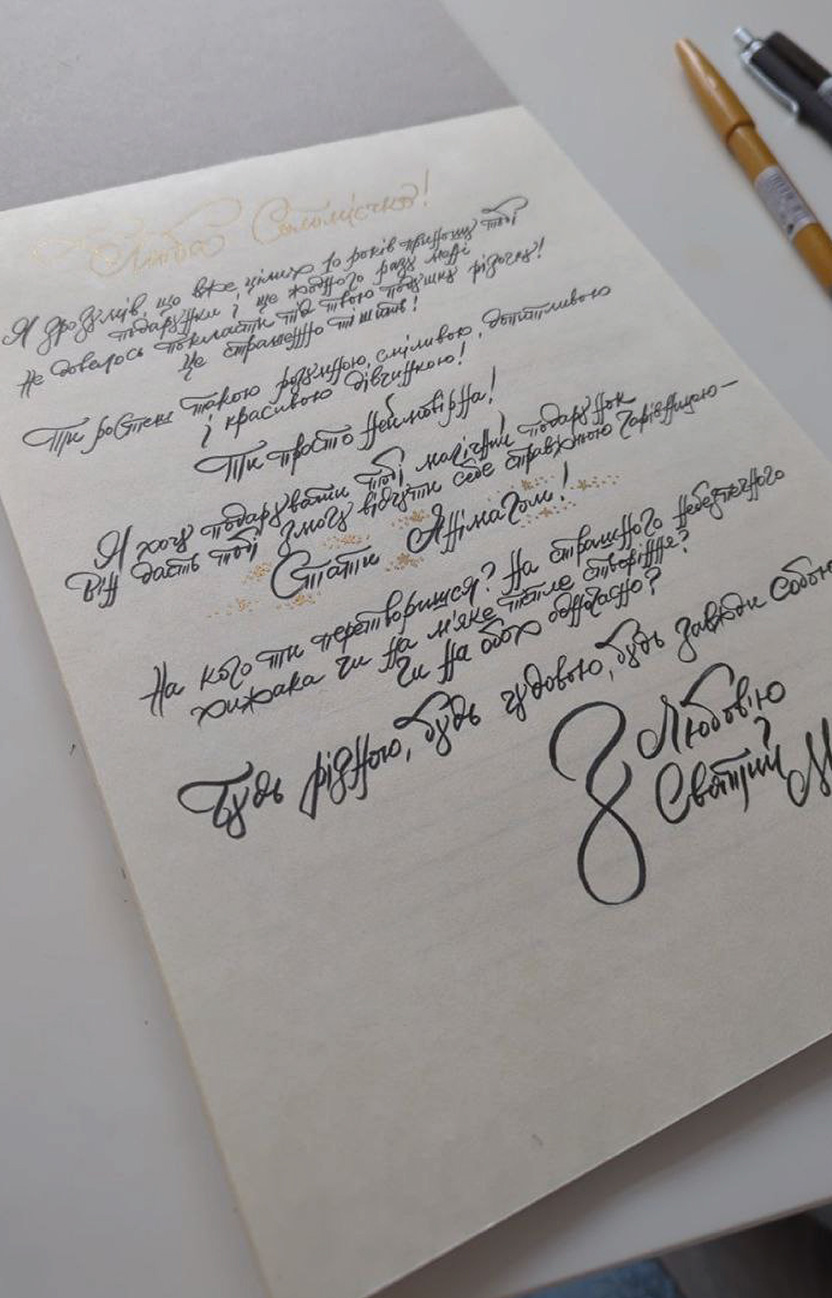 Люба Соломієчко!
Я зрозумів, що вже цілих 10 років приношу тобі
подарунки і ще жодного разу мені
не довелось покласти під твою подушку різочку!
Це страшенно тішить!
Ти ростеш такою розумною, сміливою, допитливою
і красивою дівчинкою!
Ти просто неймовірна!
Я хочу подарувати тобі магічний подарунок
Він дасть тобі змогу відчути себе справжньою чарівницею –
Стати Анімагом!
На кого ти перетворишся? На страшного небезпечного
хижака чи на м'яке тепле створіння?
Чи на обох одночасно?
Будь рідною, будь чудовою, будь завжди собою
З Любов'ю
Святий М